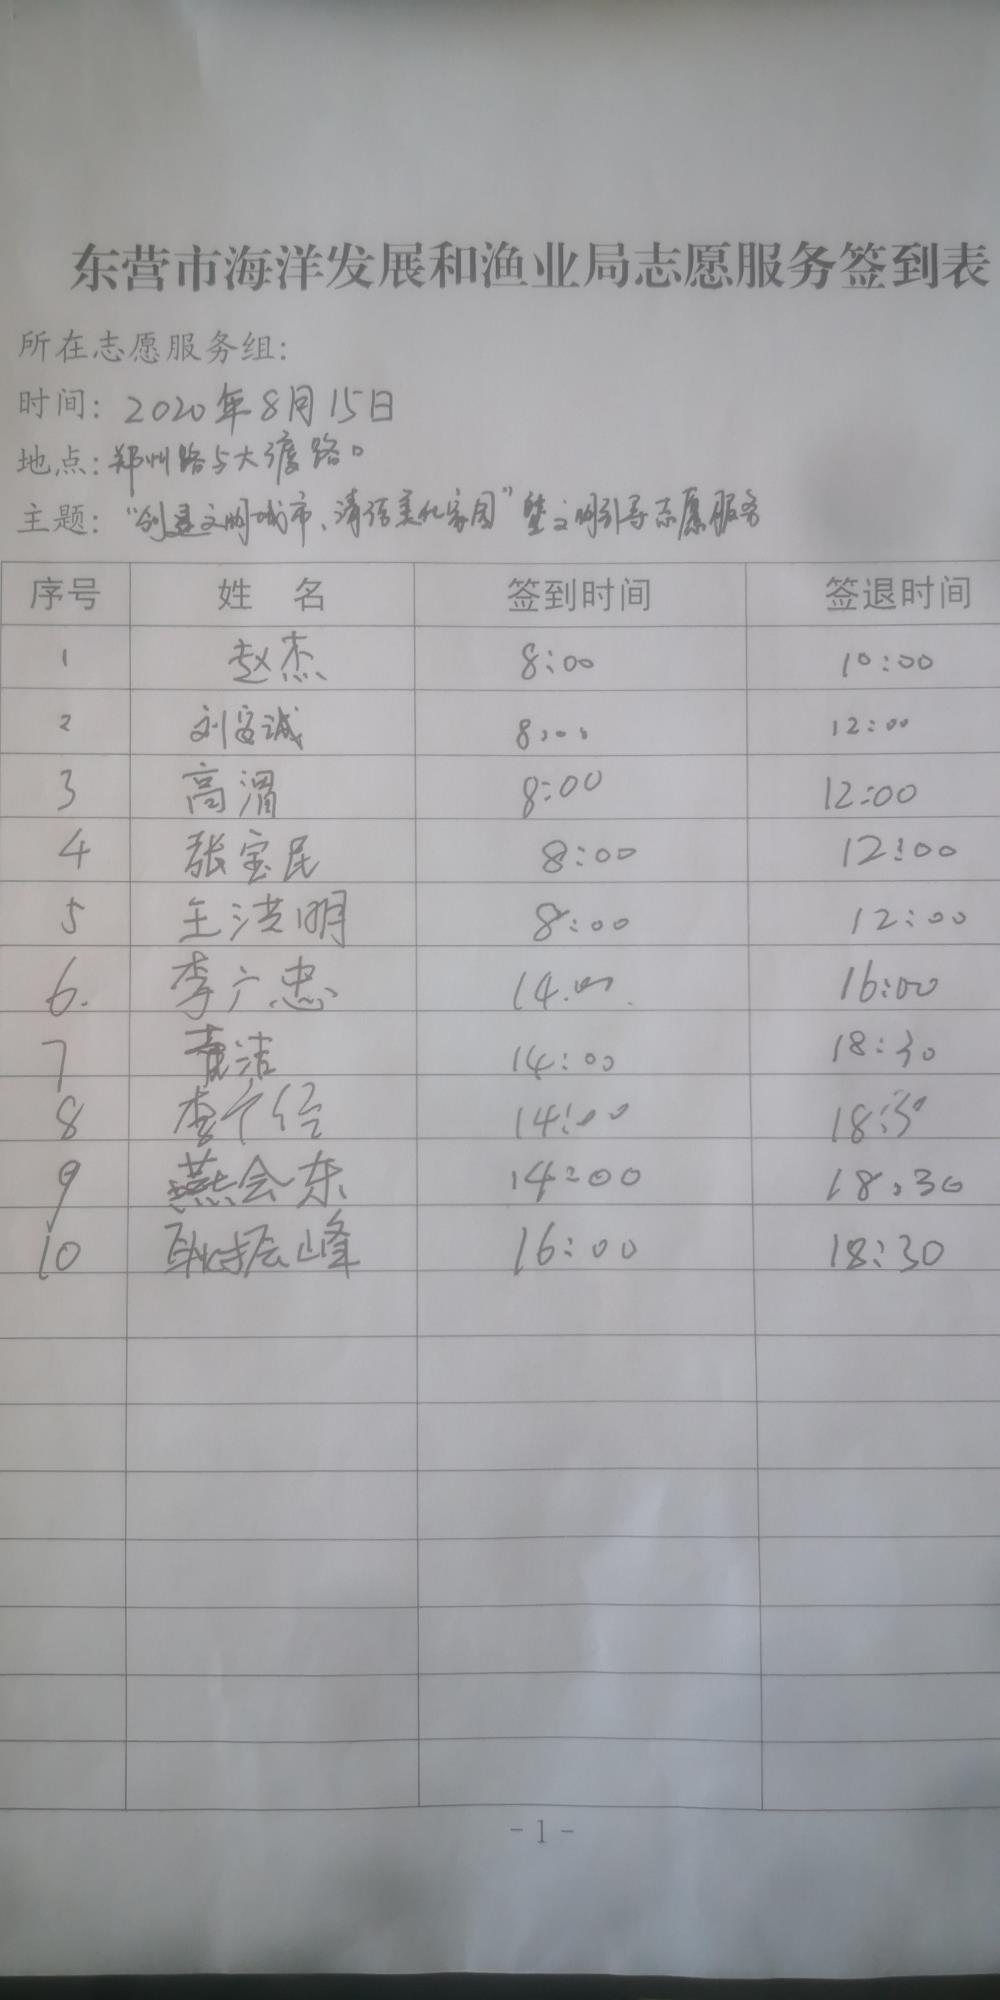 东营市海洋发展和渔业局志愿服务签到表
所在志愿服务组：
时间：2020年8月15日
地点：郑州路与大渡路口
主题："创建文明城市、清洁美化家园"暨文明引导志愿服务
序号 姓 名 签到时间 签退时间
1 赵杰 8:00 10:00
2 刘安诚 8:00 12:00
3 高渭 8:00 12:00
4 张宝民 8:00 12:00
5 王洪明 8:00 12:00
6. 李广忠 14:00 16:00
7 洁 14:00 18:30
8 李 14:00 18:30
9 燕会东 14:00 18:30
10 耿振峰 16:00 18:30
- 1 -